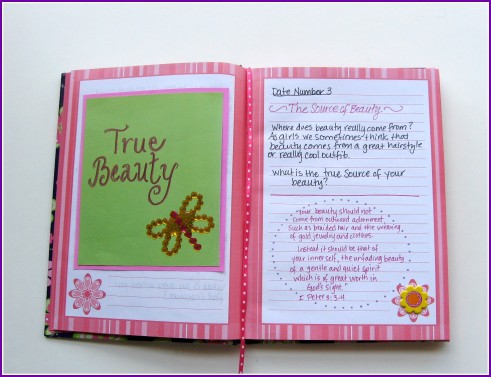 True
Beauty
Date Number 3
The Source of Beauty
Where does beauty really come from?
As girls we sometimes think that
beauty comes from a great hairstyle
or really cool outfit.
What is the true source of your
beauty?
"your beauty should not
come from outward adornment,
Such as braided hair and the wearing
of gold jewelry and clothes.
Instead it should be that of
your inner self, the unfading beauty
of a gentle and quiet spirit
which is of great worth in
God's sight."
I Peter 3:3-4